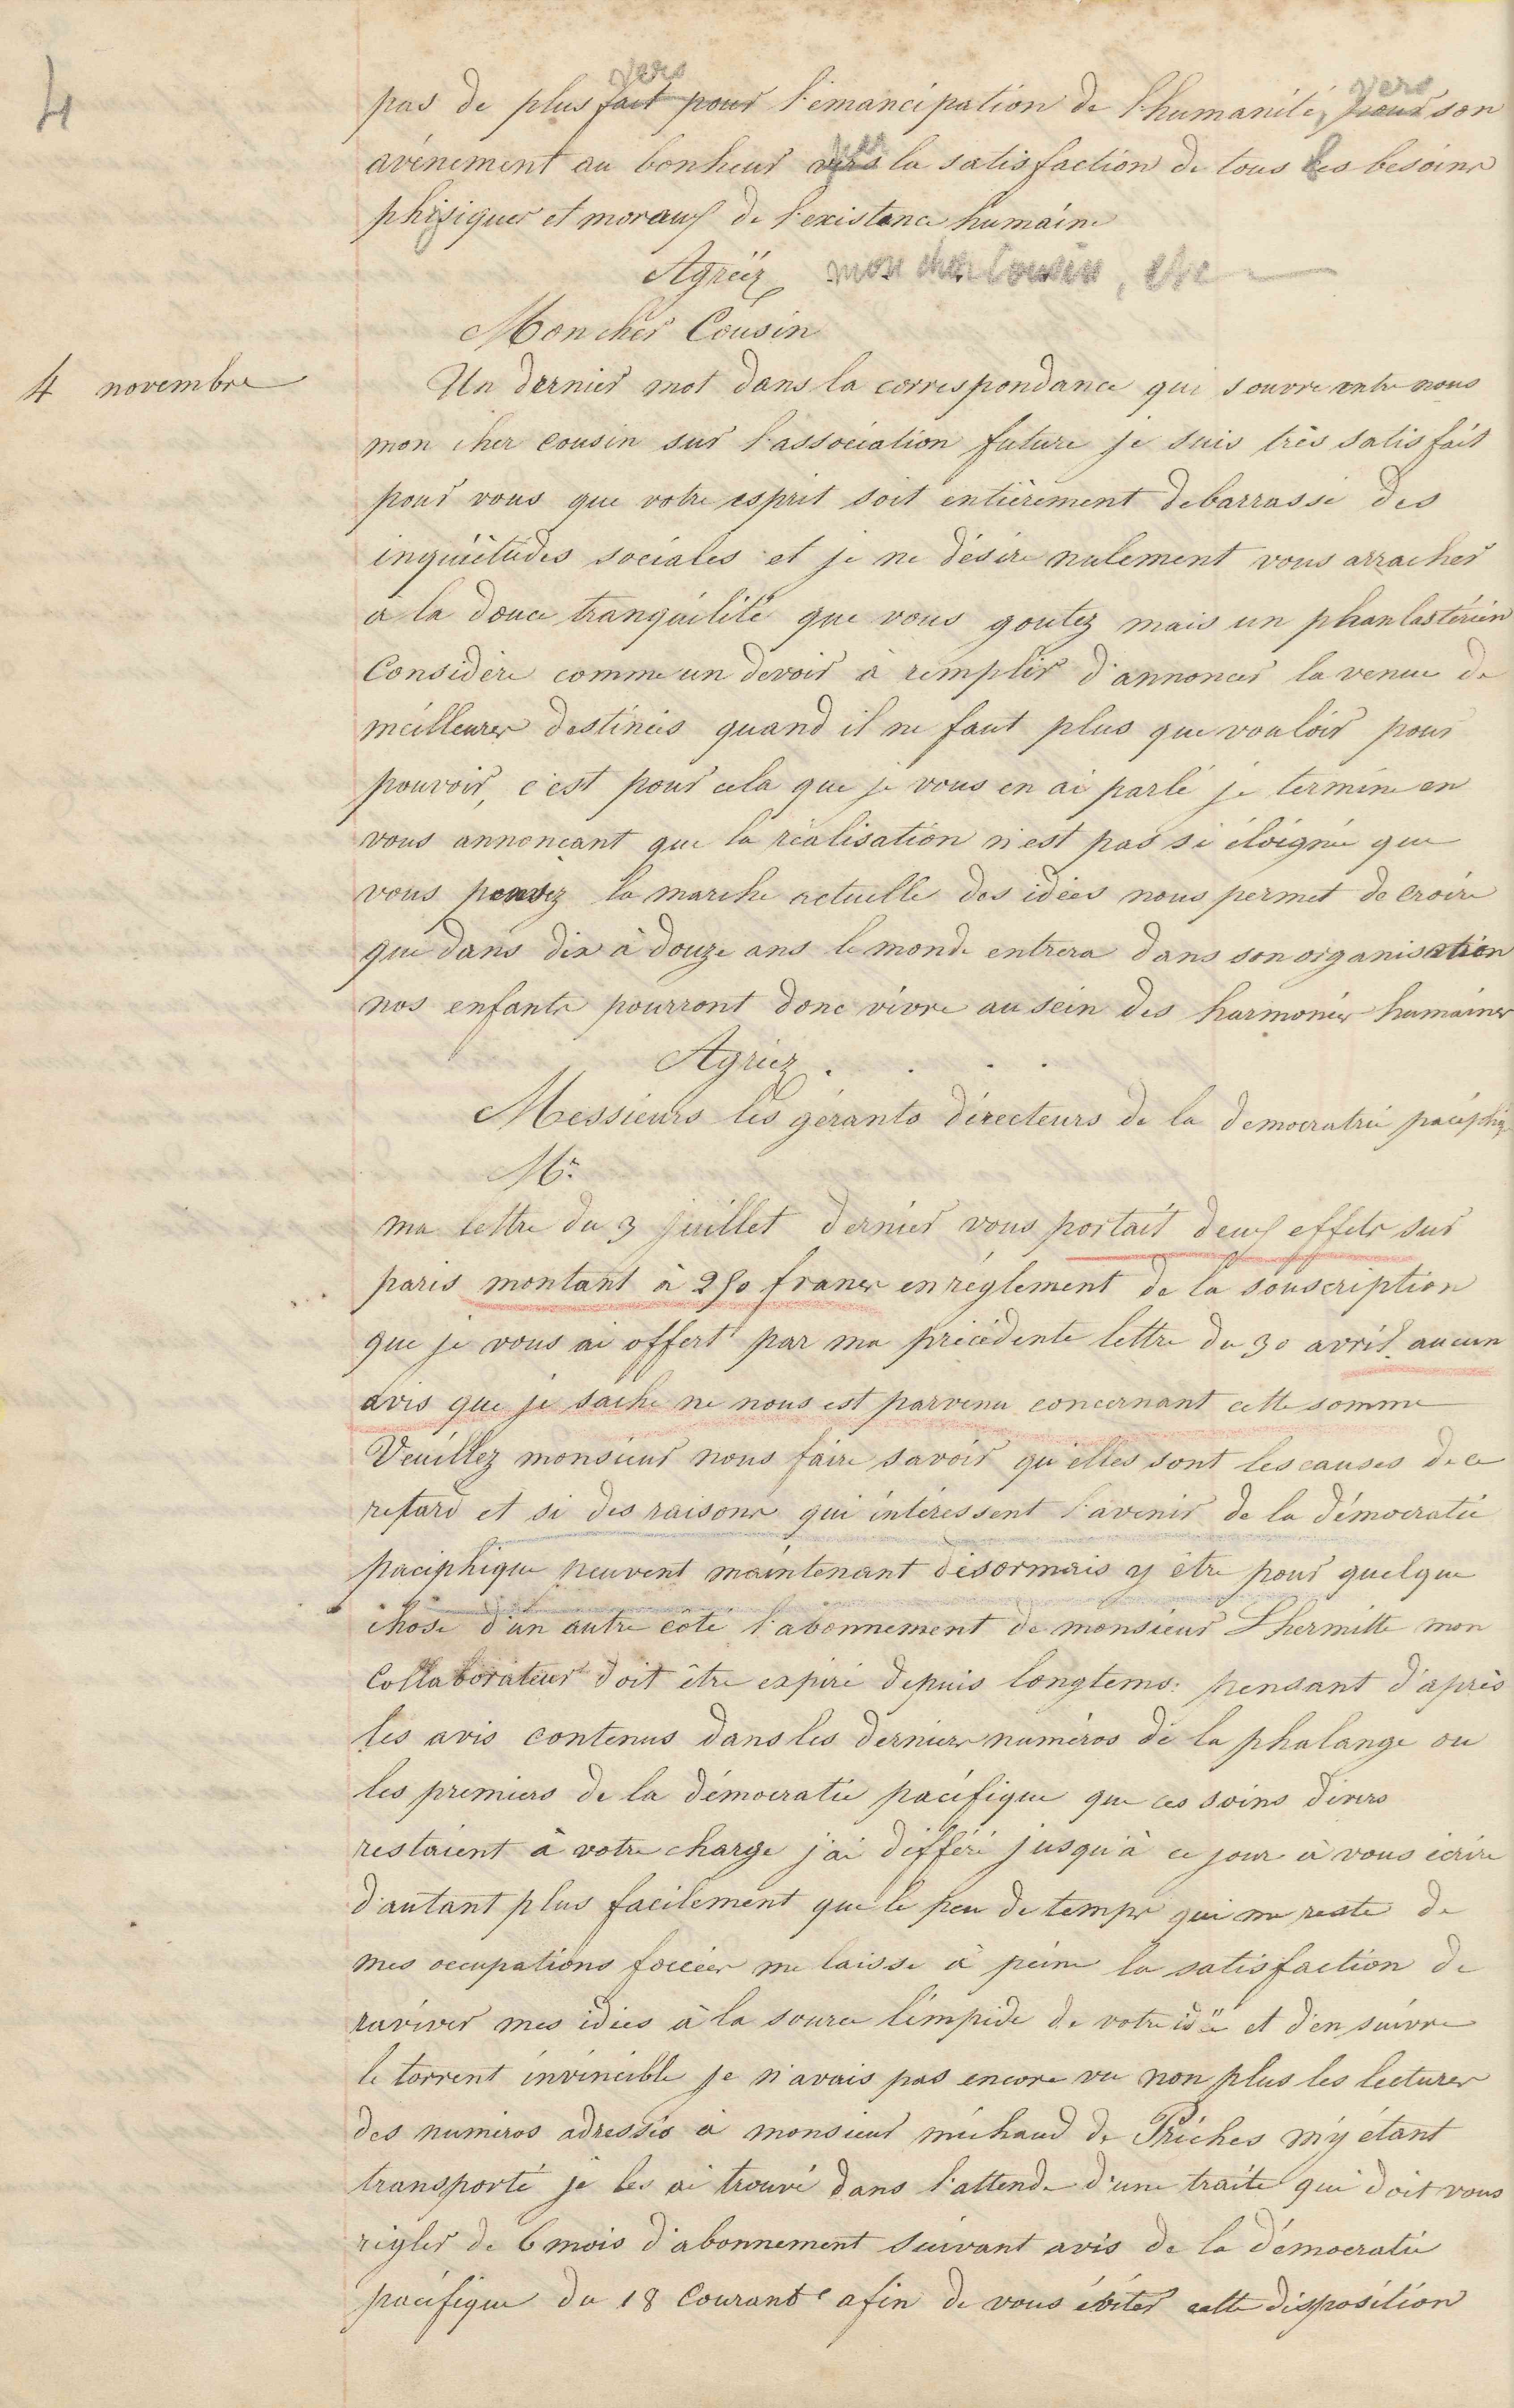 4
vers vers
pas de plus fait pour l'émancipation de l'humanité, pour son
avénement au bonheur vers la satisfaction de tous les besoins
phisiques et moraux de l'existence humaine
Agréez mon cher Cousin, etc
Mon cher Cousin
4 novembre
Un dernier mot dans la correspondance qui s'ouvre entre nous
mon cher cousin sur l'association future je suis très satisfait
pour vous que votre esprit soit entièrement debarrassé des
inquiétudes sociales et je ne désire nulement vous arracher
à la douce tranquilité que vous goutez mais un phanlastérien
Considère comme un devoir à remplir d'annoncer la venue de
meilleures destinées quand il ne faut plus que vouloir pour
pouvoir, c'est pour cela que je vous en ai parlé je termine en
vous annonçant que la réalisation n'est pas si éloignée que
vous pensez la marche actuelle des idées nous permet de croire
que dans dix à douze ans le monde entrera dans son organisation
nos enfants pourront donc vivre au sein des harmonies humaines
Agréez . . . .
Messieurs les gérants directeurs de la democratrie paciphiq
Mr.
ma lettre du 3 juillet dernier vous portait deux effets sur
paris montant à 250 francs en réglement de la souscription
que je vous ai offert par ma précédente lettre du 30 avril. aucun
avis que je sache ne nous est parvenu concernant cette somme
Veuillez monsieur nous faire savoir qu'elles sont les causes de ce
retard et si des raisons qui intéressent l'avenir de la démocratie
paciphique peuvent maintenant désormais y être pour quelque
chose d'un autre côté l'abonnement de monsieur Lhermitte mon
Collaborateur doit être expiré depuis longtems: pensant d'après
les avis contenus dans les derniers numéros de la phalange ou
les premiers de la démocratie pacifique que ces soins divers
restaient à votre charge j'ai différé jusqu'à ce jour à vous écrire
d'autant plus facilement que le peu de temps qui me reste de
mes occupations forcées me laisse à peine la satisfaction de
raviver mes idées à la source limpide de votre idée et d'en suivre
le torrent invincible je n'avais pas encore vu non plus les lectures
des numéros adressés à monsieur michaud de Priches m'y étant
transporté je les ai trouvé dans l'attende d'une traite qui doit vous
régler de 6 mois d'abonnement suivant avis de la démocratie
pacifique du 18 Courant afin de vous éviter cette disposition